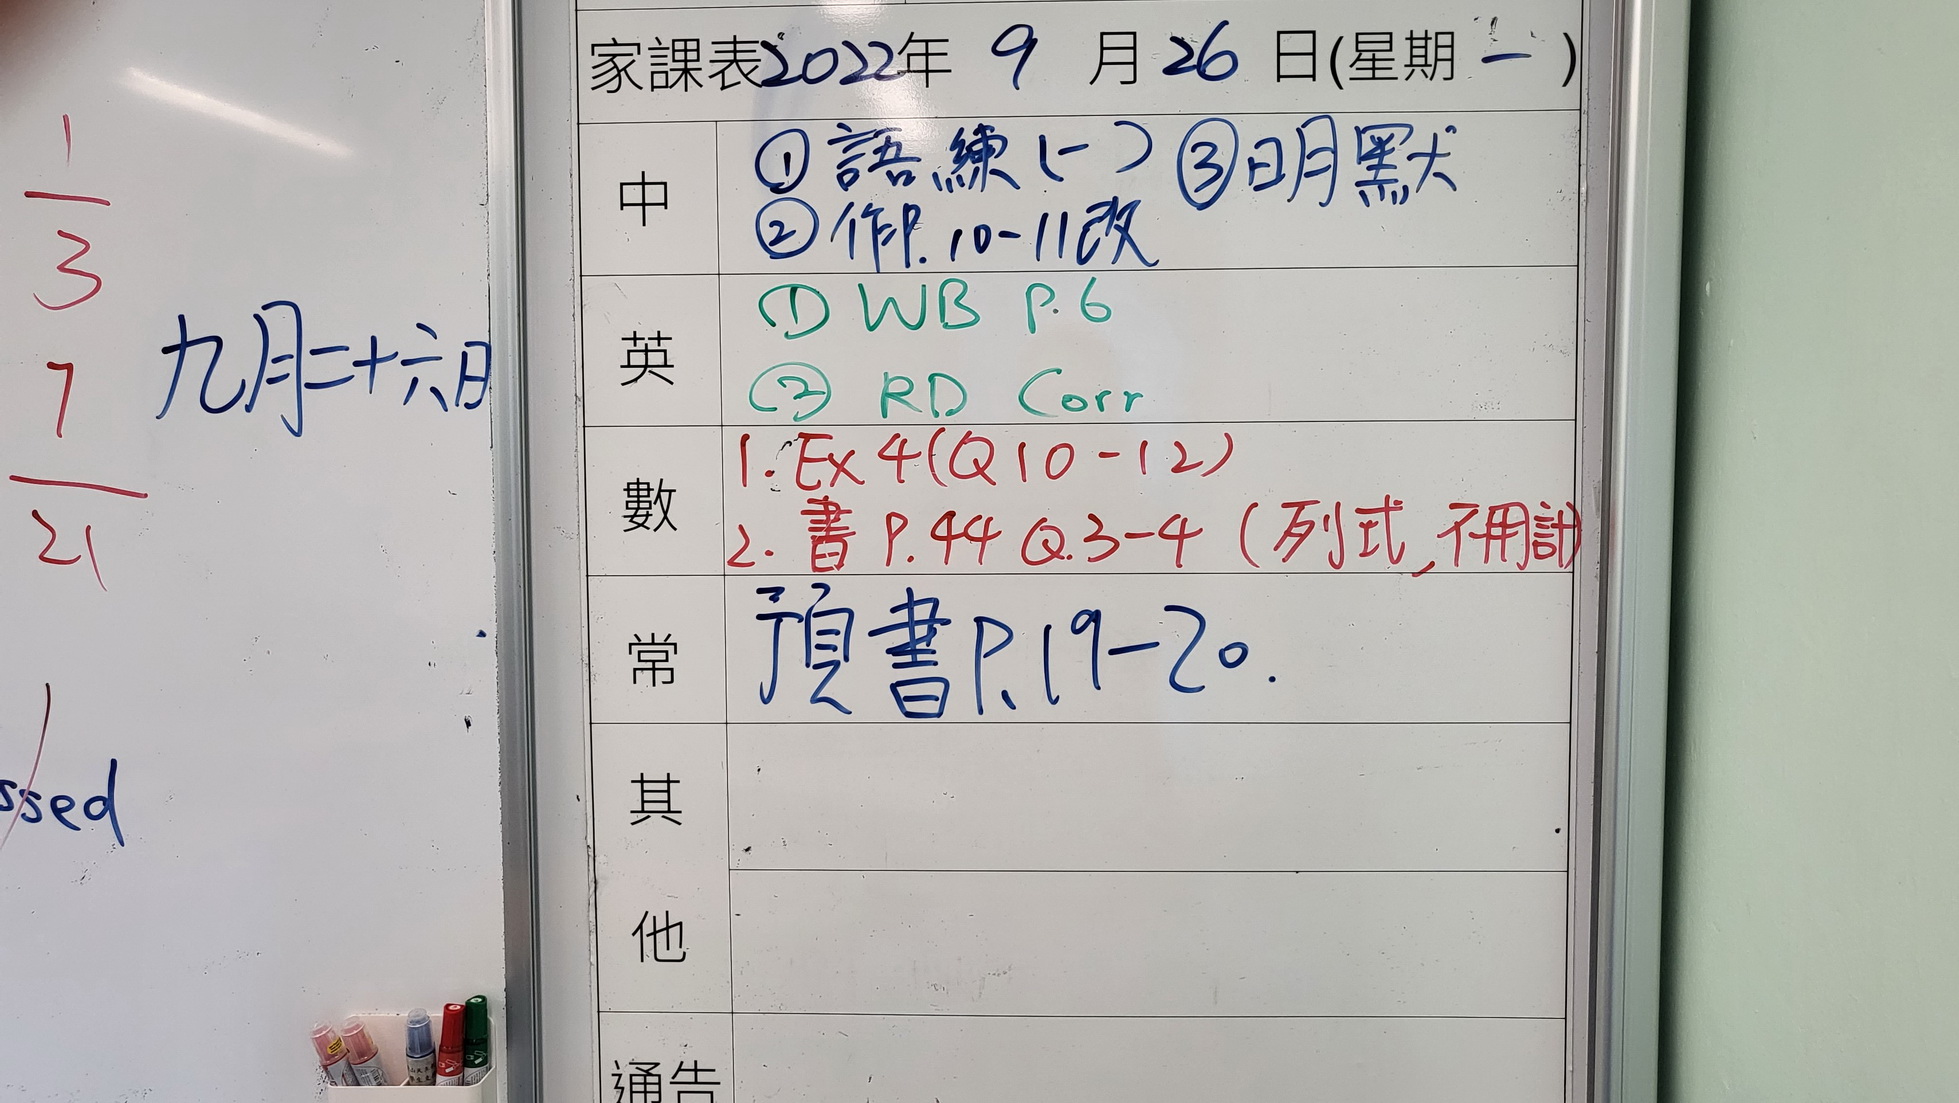 1
3
7
21
九月二十六日
ssed
家課表2022年 9 月 26 日(星期 一 )
中
① 語練(一) ③ 明默
② 作P.10-11改
英
① WB P.6
② RD Corr
數
1. Ex 4(Q10-12)
2. 書 P.44 Q.3-4 (列式,不用計)
常
預書P.19-20.
其
他
通告